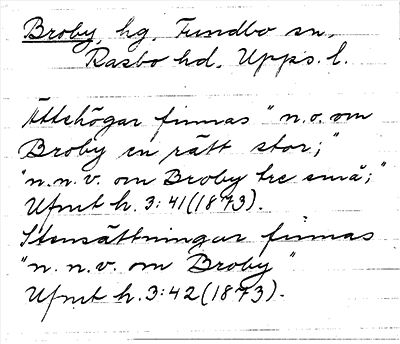 Broby, hg. Funbo sn.
Rasbo hd. Upps. l.
Ättehögar finnas "n.o. om
Broby en rätt stor;"
"n.n.v. om Broby tre små;"
Ufmt h. 3:41(1873).
Stensättningar finnas
"n.n.v. om Broby"
Ufmt h. 3:42(1873).